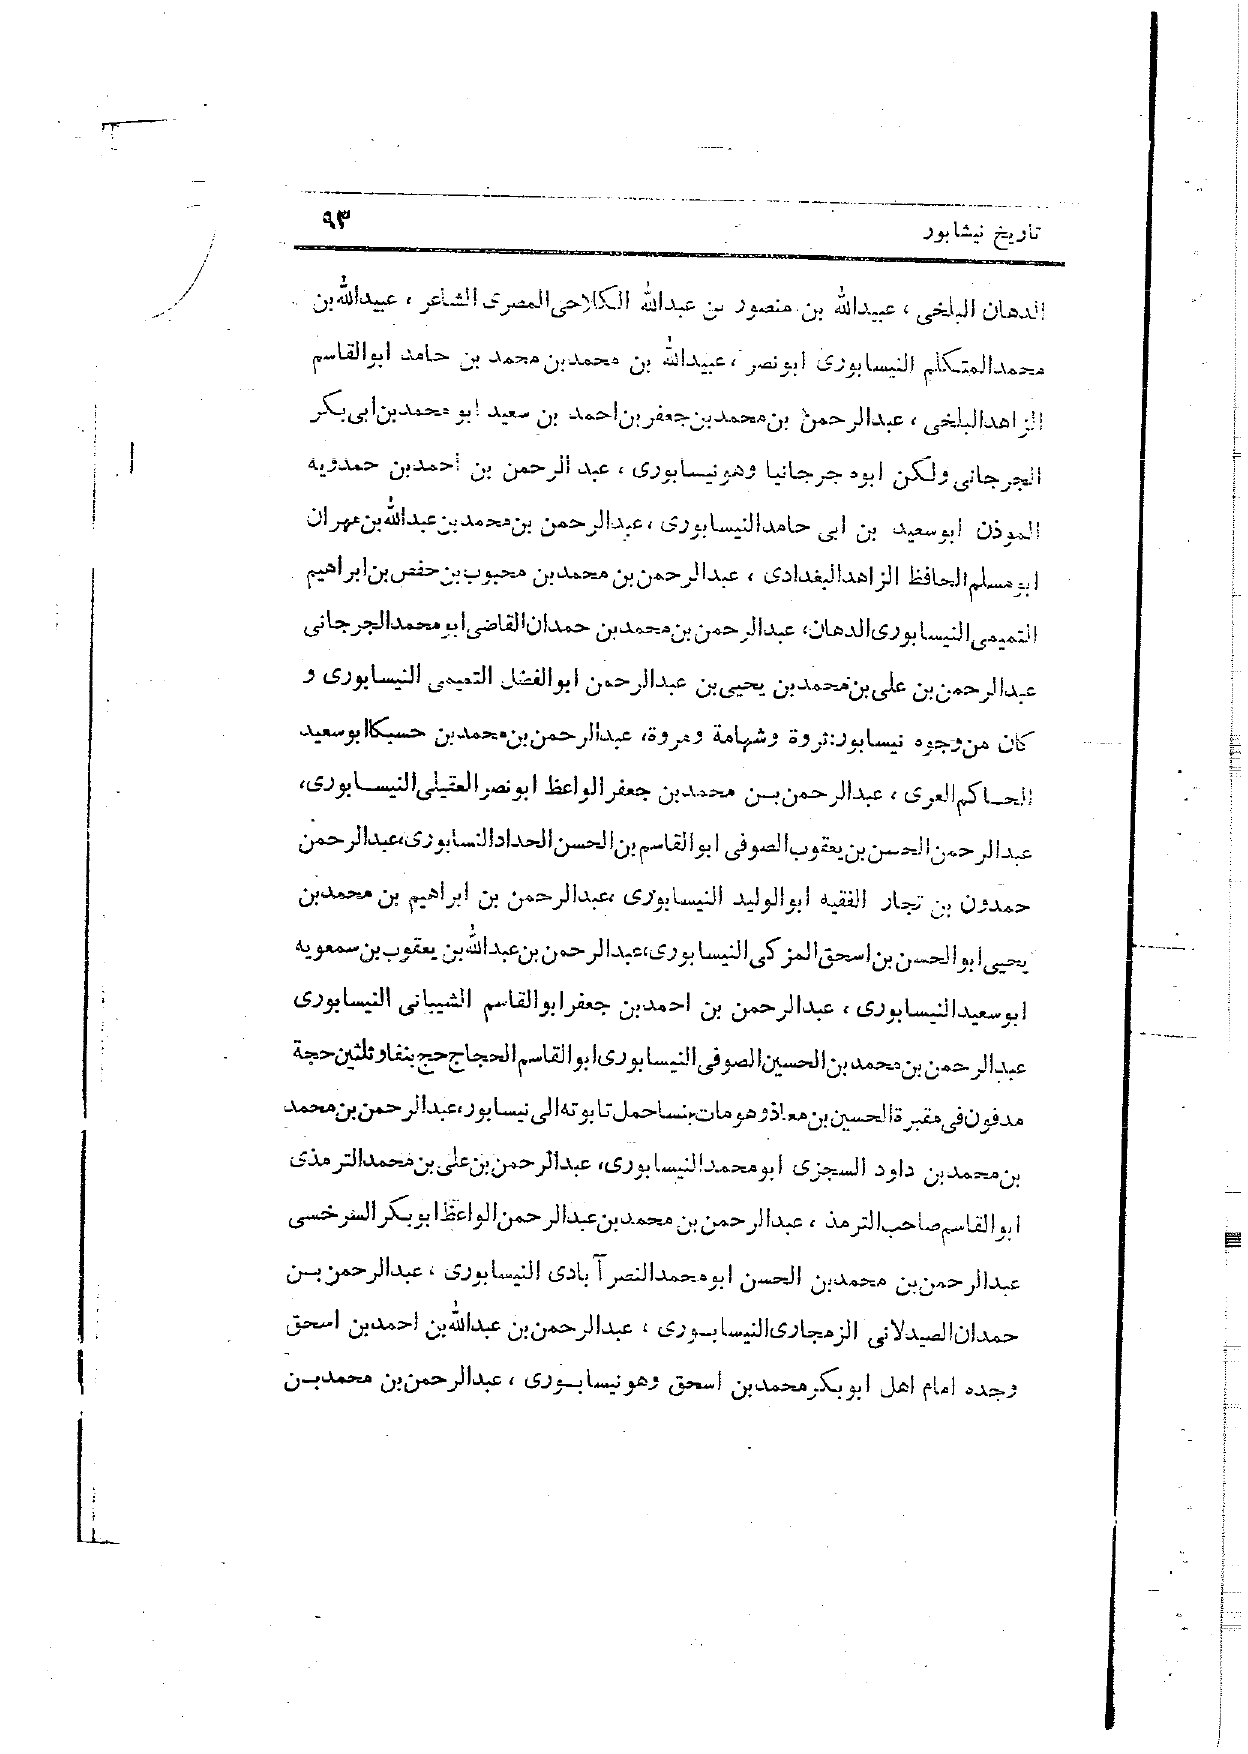 تاریخ نیشابور
۹۳
الدهان البلخی ، عبیدالله بن منصور بن عبدالله الکلاحی المصری الشاعر ، عبیدالله بن
محمدالمتکلم النیسابوری ابونصر ، عبیدالله بن محمدبن محمد بن حامد ابوالقاسم
الزاهدالبلخی ، عبدالرحمن بن محمدبن جعفربن احمد بن سعید ابو محمدبن ابی بکر
الجرجانی ولکن ابوه جرجانیا وهونیسابوری ، عبد الرحمن بن أحمدبن حمدویه
الموذن ابوسعید بن ابی حامدالنیسابوری ، عبدالرحمن بن محمدبن عبدالله بن مهران
ابومسلم الحافظ الزاهدالبغدادی ، عبدالرحمن بن محمدبن محبوب بن حفص بن ابراهیم
التمیمی النیسابوری الدهان، عبدالرحمن بن محمدبن حمدان القاضی ابومحمدالجرجانی
عبدالرحمن بن علی بن محمدبن یحیی بن عبدالرحمن ابوالفضل التمیمی النیسابوری و
کان من وجوه نیسابور: ثروة وشهامة ومروة، عبدالرحمن بن محمدبن حسیکا ابوسعید
الحاکم العری ، عبدالرحمن بن محمدبن جعفرالواعظ ابونصرالعتیلی النیسابوری،
عبدالرحمن الحسن بن یعقوب الصوفی ابوالقاسم بن الحسن الحدادالنسابوری، عبدالرحمن
حمدون بن تجار الفقیه ابوالولید النیسابوری ، عبدالرحمن بن ابراهیم بن محمدبن
یحیی ابوالحسن بن اسحق المزکی النیسابوری، عبدالرحمن بن عبدالله بن یعقوب بن سمعویه
ابوسعیدالنیسابوری ، عبدالرحمن بن احمدبن جعفرابوالقاسم الشیبانی النیسابوری
عبدالرحمن بن محمدبن الحسین الصوفی النیسابوری ابوالقاسم الحجاج حج بنفاوثلثین حجة
مدفون فی مقبرة الحسین بن معاذ وهومات بنسا حمل تابوته الی نیسابور، عبدالرحمن بن محمد
بن محمدبن داود السجزی ابومحمدالنیسابوری، عبدالرحمن بن علی بن محمدالترمذی
ابوالقاسم صاحب الترمذ ، عبدالرحمن بن محمدبن عبدالرحمن الواعظ ابوبکر السرخسی
عبدالرحمن بن محمدبن الحسن ابومحمدالنصرآبادی النیسابوری ، عبدالرحمن بن
حمدان الصیدلانی الزمجاری النیسابوری ، عبدالرحمن بن عبدالله بن احمدبن اسحق
وجده امام اهل ابوبکرمحمدبن اسحق وهونیسابوری ، عبدالرحمن بن محمدبن